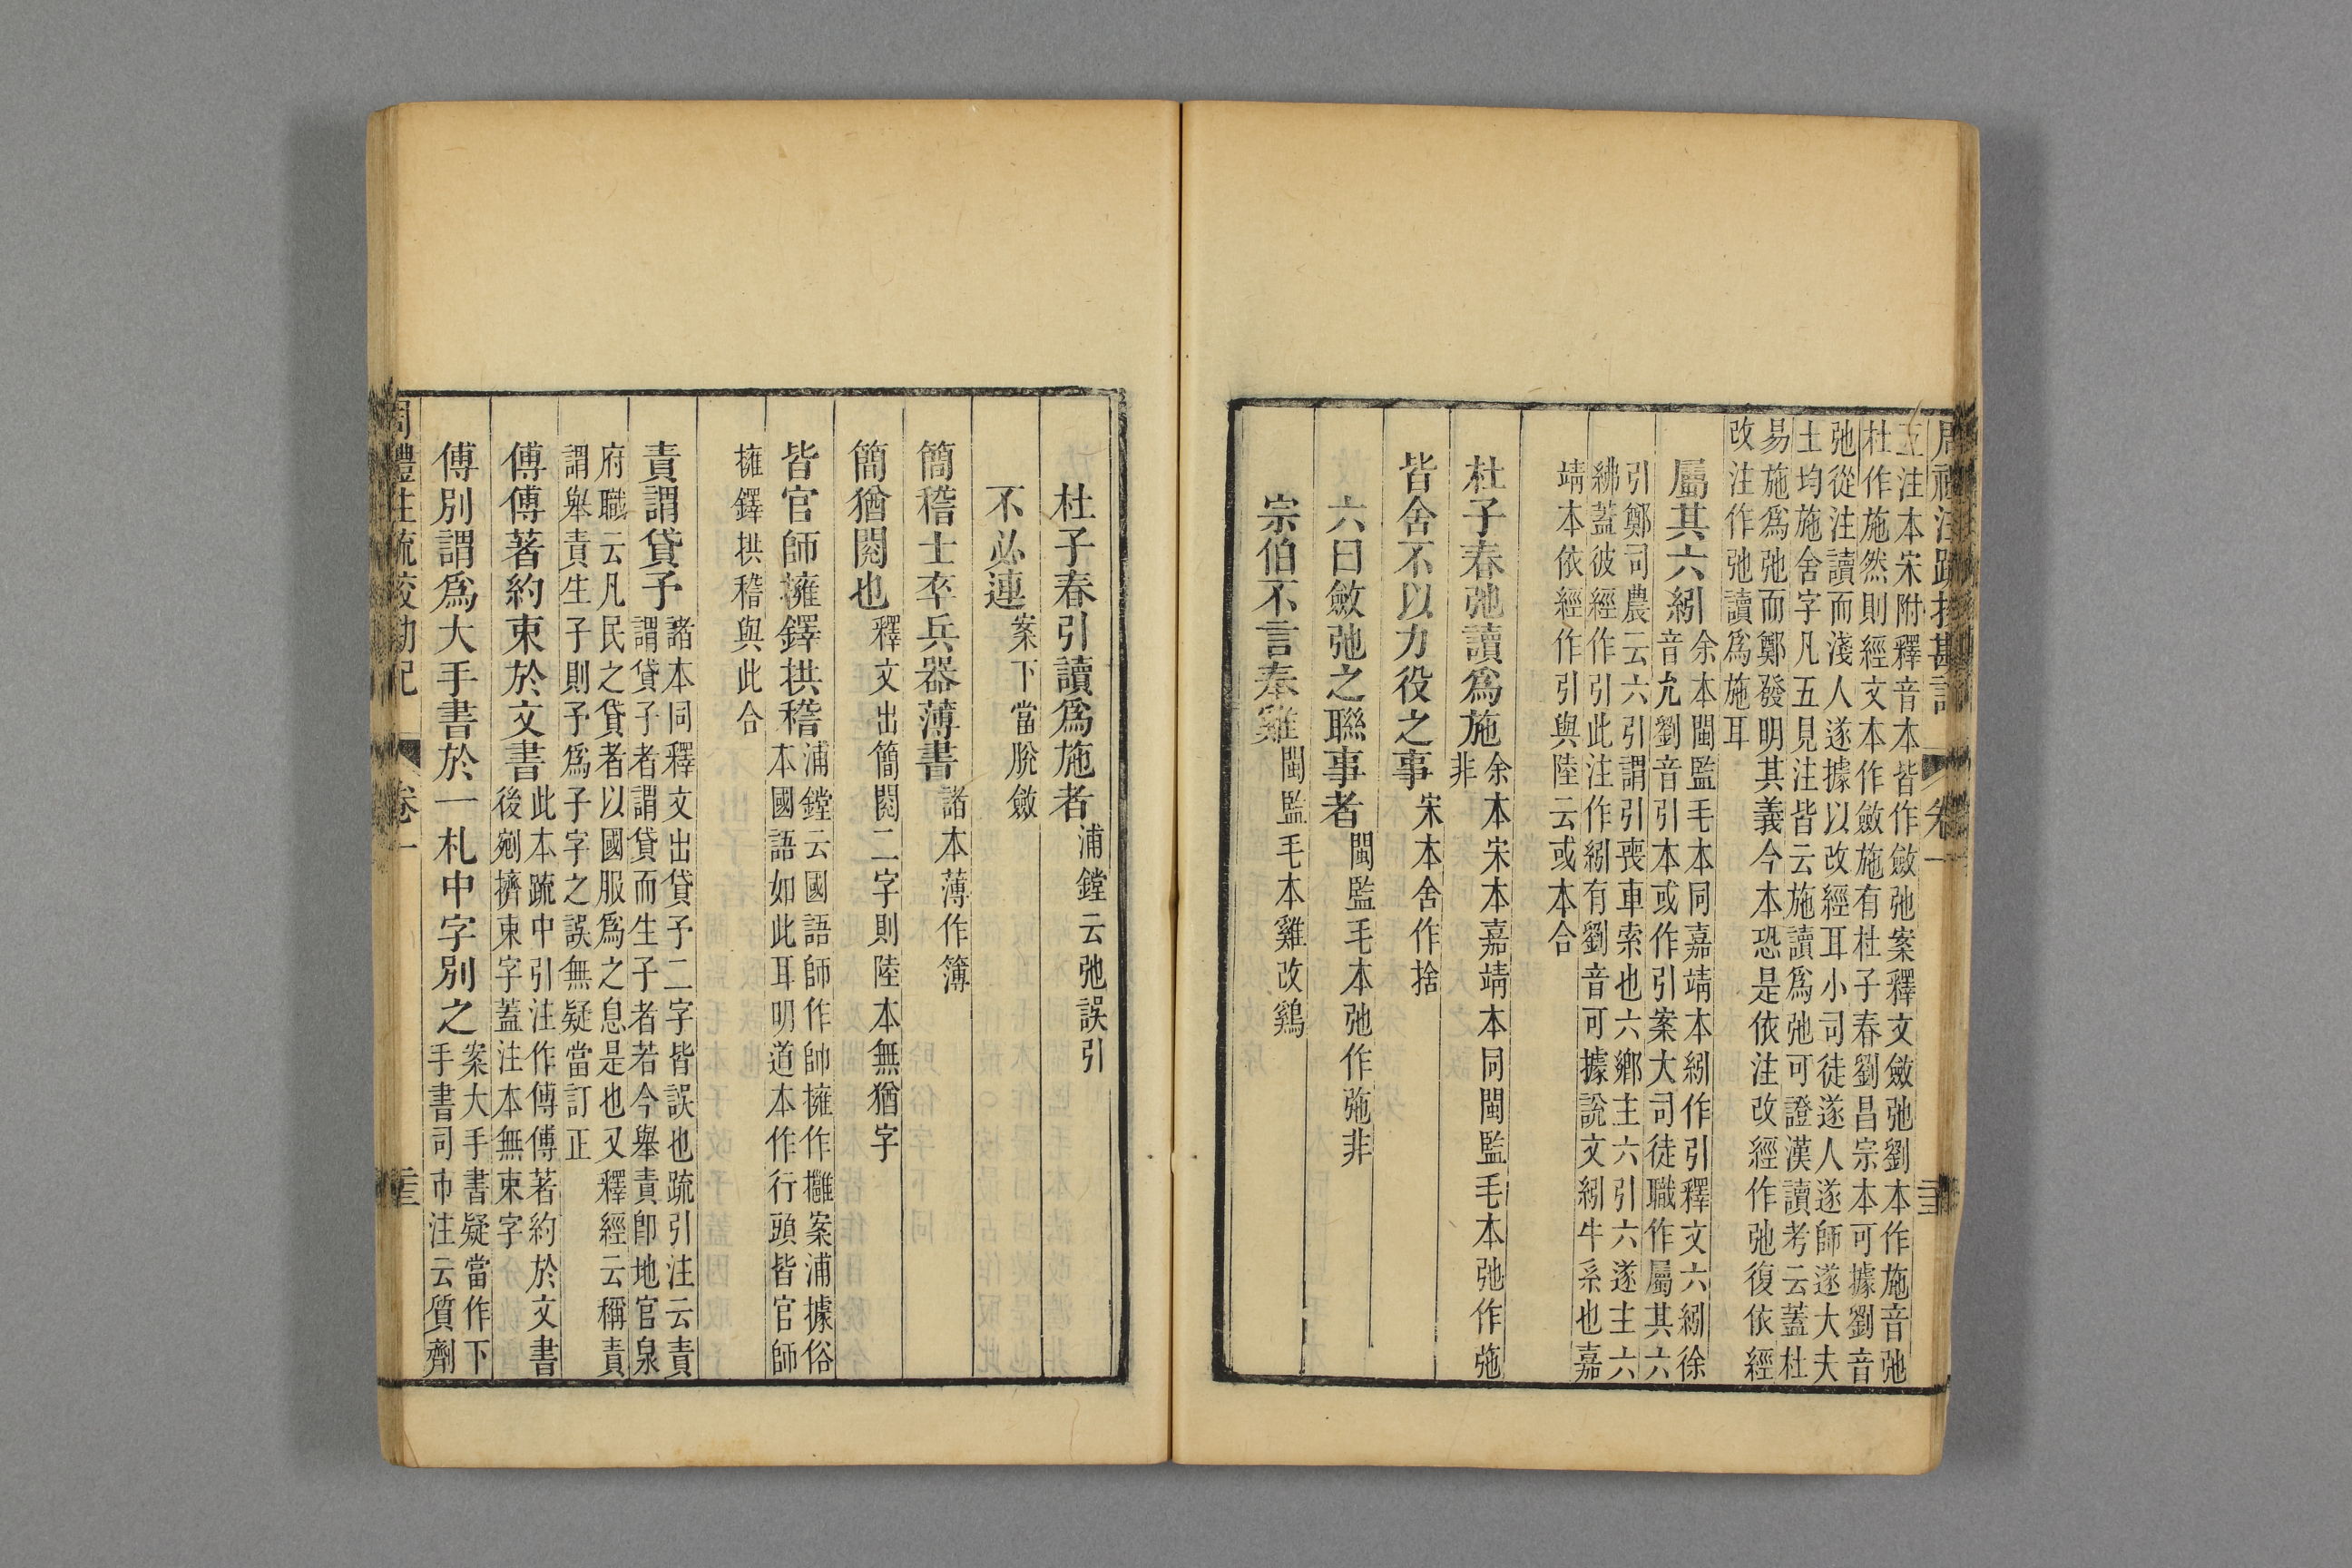 周禮注疏挍勘記 卷一
互注本宋附釋音本皆作斂弛案釋文斂弛劉本作施音弛
杜作施然則經文本作斂施有杜子春劉昌宗本可據劉音
弛從注讀而淺人遂據以改經耳小司徒遂人遂師遂大夫
土均施舍字凡五見注皆云施讀爲弛可證漢讀考云蓋杜
易施爲弛而鄭發明其義今本恐是依注改經作弛復依經
改注作弛讀爲施耳
屬其六綱
余本閩監毛本同嘉靖本綱作引釋文六綱徐
音允劉音引本或作引案大司徒職作屬其六
引鄭司農云六引謂引喪車索也六鄉主六引六遂主六
綍蓋彼經作引此注作綱有劉音可據說文綱牛系也嘉
靖本依經作引與陸云或本合
杜子春弛讀爲施
余本宋本嘉靖本同閩監毛本弛作㢮
非
皆舍不以力役之事
宋本舍作捨
六曰斂弛之聯事者
閩監毛本弛作㢮非
宗伯不言奉雞
閩監毛本雞改鷄
杜子春引讀爲施者
浦鏜云弛誤引
不必連
案下當脫斂
簡稽士卒兵器薄書
諸本薄作簿
簡猶閱也
釋文出簡閱二字則陸本無猶字
皆官師擁鐸拱稽
浦鏜云國語師作帥擁作㩲案浦據俗
本國語如此耳明道本作行頭皆官師
擁鐸拱稽與此合
責謂貸予
諸本同釋文出貸予二字皆誤也疏引注云責
謂貸子者謂貸而生子者若今舉責卽地官泉
府職云凡民之貸者以國服爲之息是也又釋經云稱責
謂舉責生子則予爲子字之誤無疑當訂正
傅傅著約束於文書
此本疏中引注作傅傅著約於文書
後剜擠束字蓋注本無束字
傅別謂爲大手書於一札中字別之
案大手書疑當作下
手書司市注云質劑
周禮注疏挍勘記 卷一